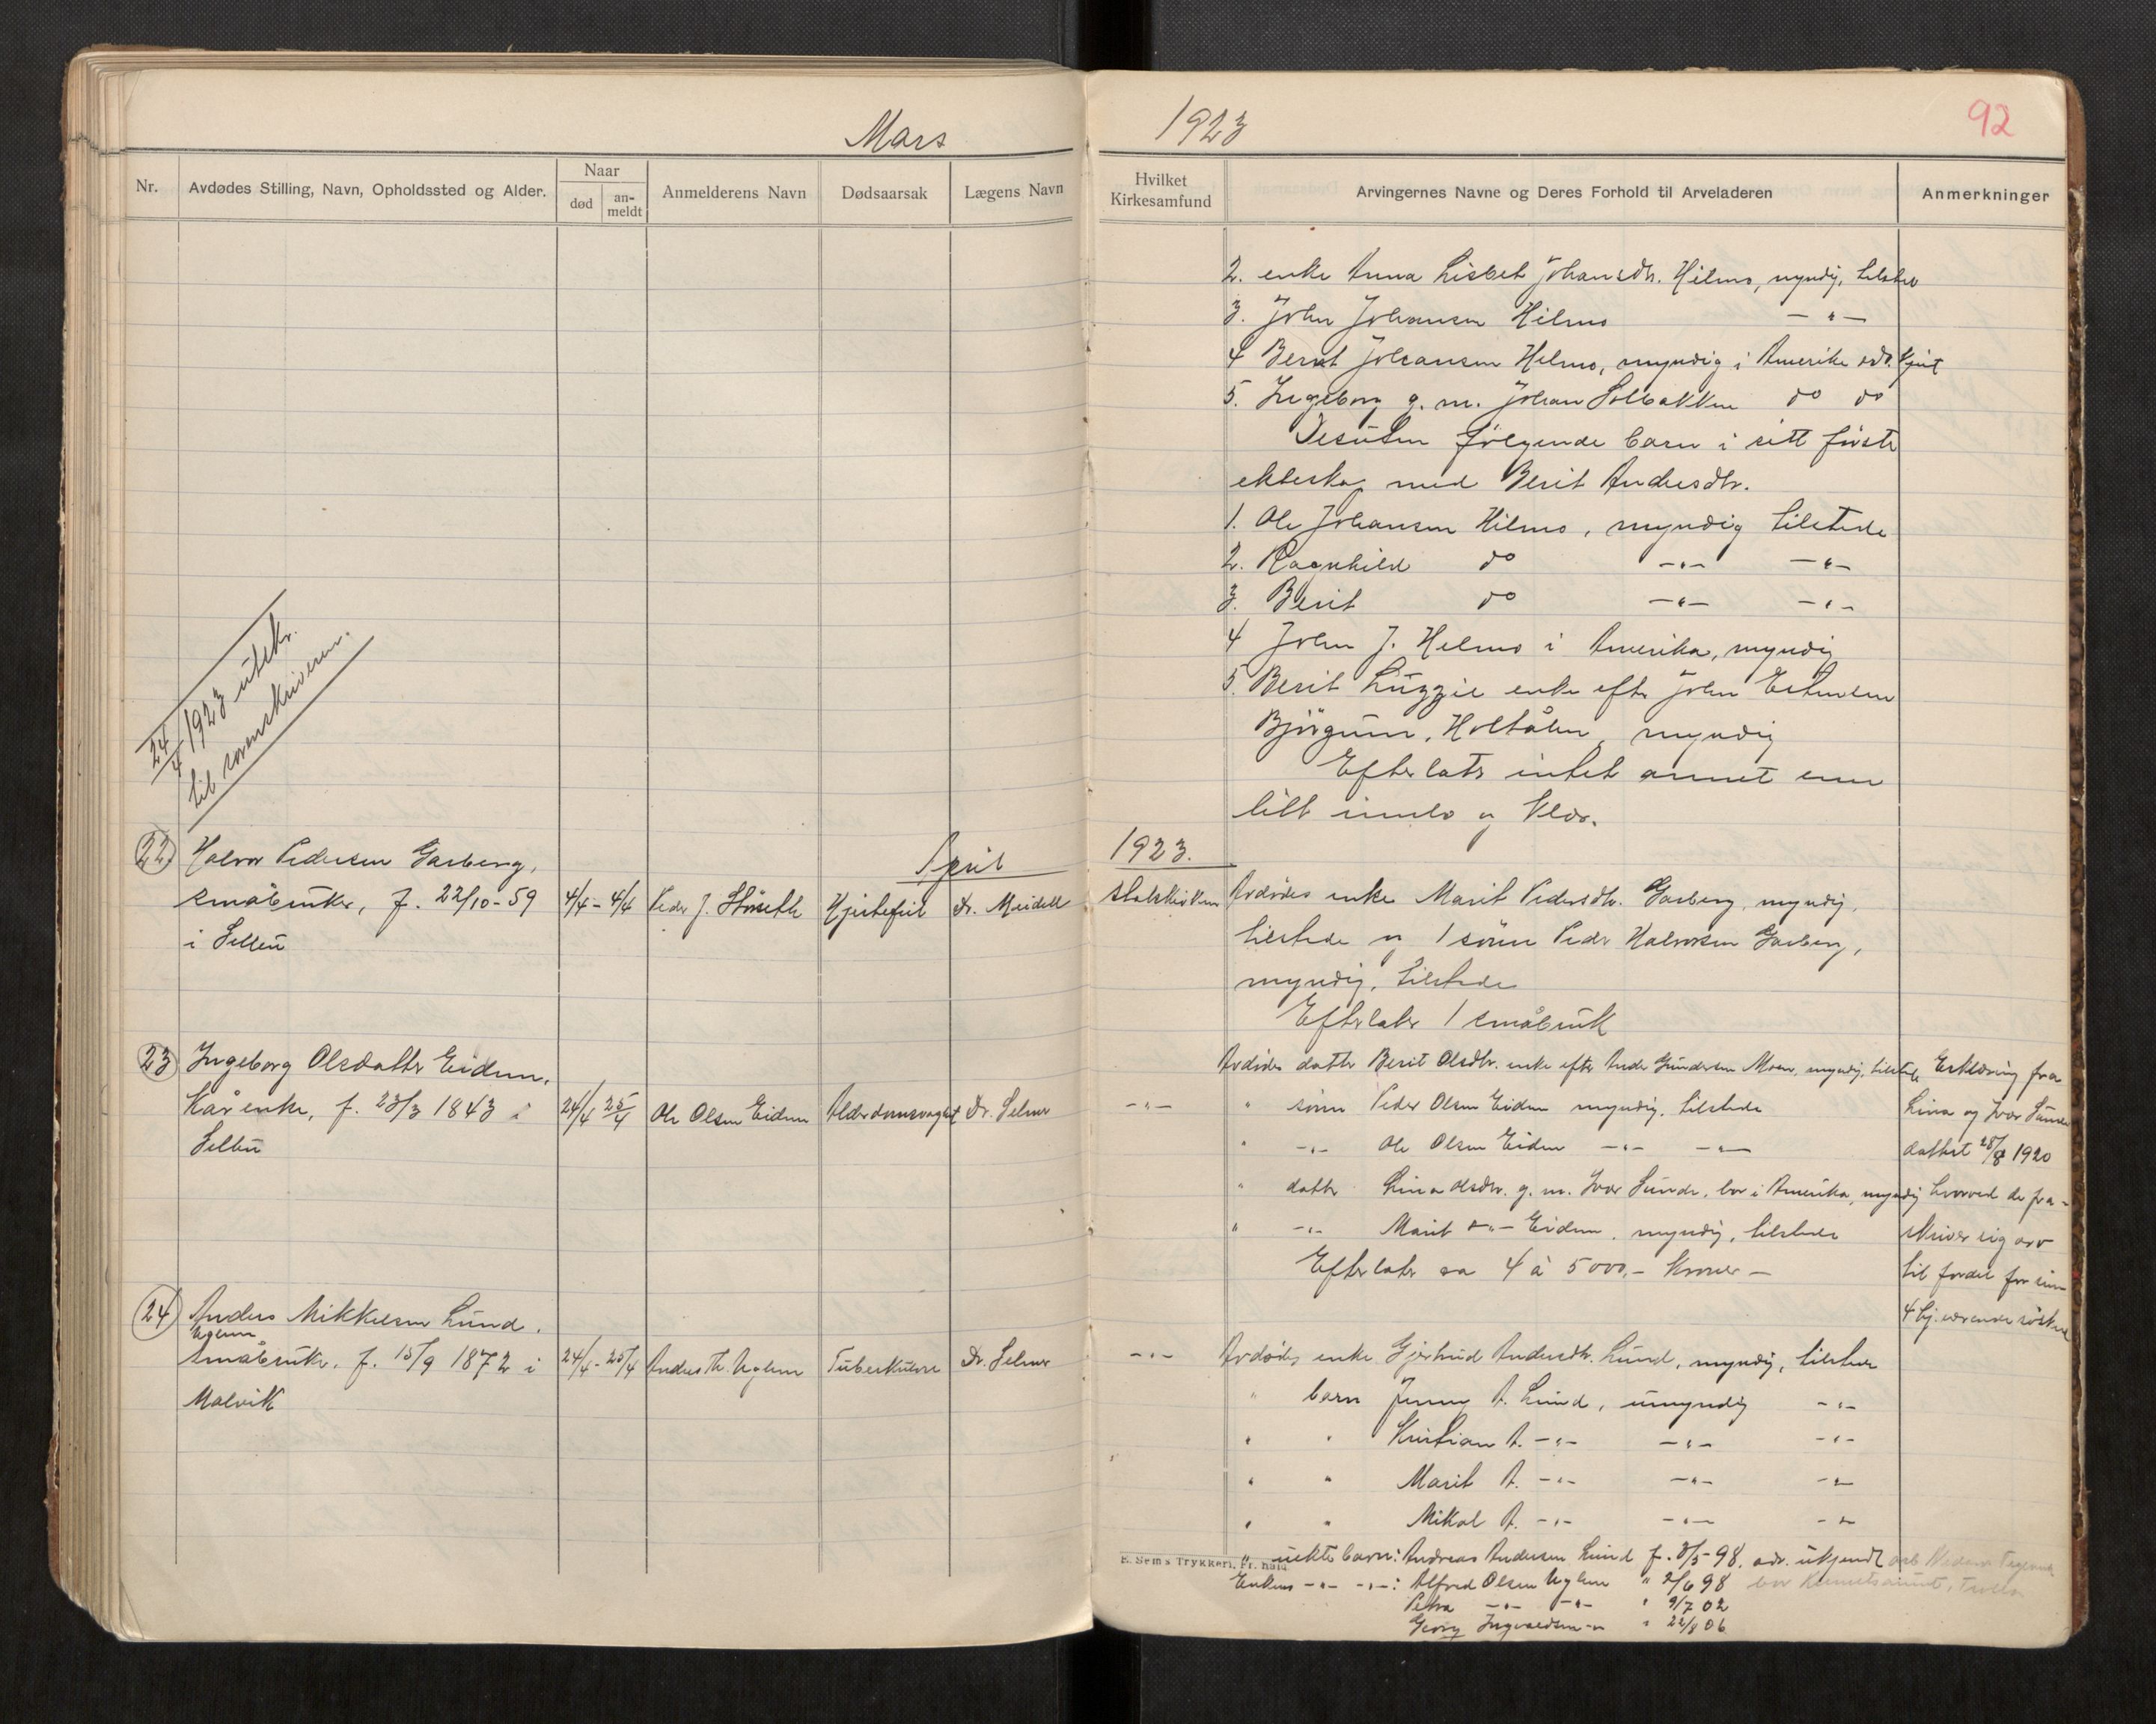 Mars
1923
92
Nr.
Avdødes Stilling, Navn, Opholdssted og Alder.
Naar
død
an-
meldt
Anmelderens Navn
Dødsaarsak
Lægens Navn
Hvilket
Kirkesamfund
Arvingernes Navne og Deres Forhold til Arveladeren
Anmerkninger
2. enke Anna Lisbet Johansdtr. Hilmo, myndig, tilstede
3. John Johansen Hilmo — " —
4 Bernt Johansen Hilmo, myndig i Amerika adr. kjent
5. Ingeborg g. m. Johan Solbakken do do
Desuten følgende barn i sitt første
ekteskap med Berit Andersdtr.
1. Ole Johansen Hilmo, myndig tilstede
2. Ragnhild do —"— —"—
3. Berit do —"— —"—
4 John J. Hilmo i Amerika, myndig
5. Berit Luzzie enke efter John Estensen
Bjørgum, Holtålen, myndig
Efterlater intet annet enn
litt innbo og klær.
24/4 1923 utskr.
til sorenskriveren.
April
1923.
22
Halvor Pedersen Garberg,
småbruker, f. 22/10-59
i Selbu
4/4 - 4/4
Peder J. Støwseth
Hjertefeil
Dr. Meidell
Statskirken
Avdødes enke Marit Pedersdtr. Garberg, myndig,
tilstede og 1 sønn Peder Halvorsen Garberg,
myndig, tilstede
Efterlater 1 småbruk
23
Ingeborg Olsdatter Eidem,
Kårenke, f. 23/3 1843 i
Selbu
24/4 25/4
Ole Olsen Eidem
Alderdomssvaghet
Dr. Selmer
—"—
Avdødes datter Berit Olsdtr. enke efter Anders Gundersen Moen, myndig, tilstede
" sønn Peder Olsen Eidem myndig, tilstede
" —"— Ole Olsen Eidem —"— —"—
" datter Lina Olsdtr. g. m. Ivar Sunde, bor i Amerika, myndig
" —"— Marit —"— Eidem, myndig, tilstede
Efterlater ca 4 à 5000,- Kroner —
Erklæring fra
Lina og Ivar Sunde
datert 28/8 1920
hvorved de fra-
skriver sig arv
til fordel for sine
4 hj. værende søsken
24
Anders Mikkelsen Lund,
Uglem
småbruker, f. 15/9 1872 i
Malvik
24/4 - 25/4
Anders Th. Uglem
Tuberkulose
Dr. Selmer
—"—
Avdødes enke Gjertrud Andersdtr. Lund, myndig, tilstede
" barn Jenny A. Lund, umyndig —"—
" " Kristian A. —"— —"— —"—
" " Marit A. —"— —"— —"—
" " Mikal A. —"— —"— —"—
E. Sems Trykkeri, Fr. hald
" uekte barn: Andreas Andersen Lund f. 3/5-98, adr. ukjendt
Enkens —"— —"—: Alfred Olsen Uglem " 2/6 98
Petra —"— —"— " 9/7 02
Georg Ingvaldsen —"— " 22/8 06